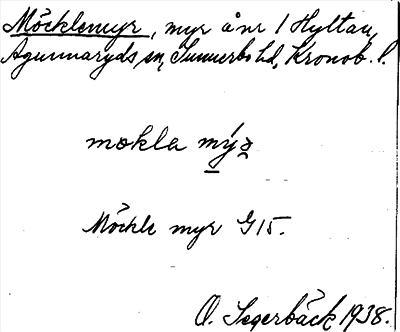 Möcklemyr, myr å nr 1 Hyltan,
Agunnaryds sn, Sunnerbo hd, Kronob. l.
mokla mýz
Möckle myr G15.
O. Segerbäck 1938.